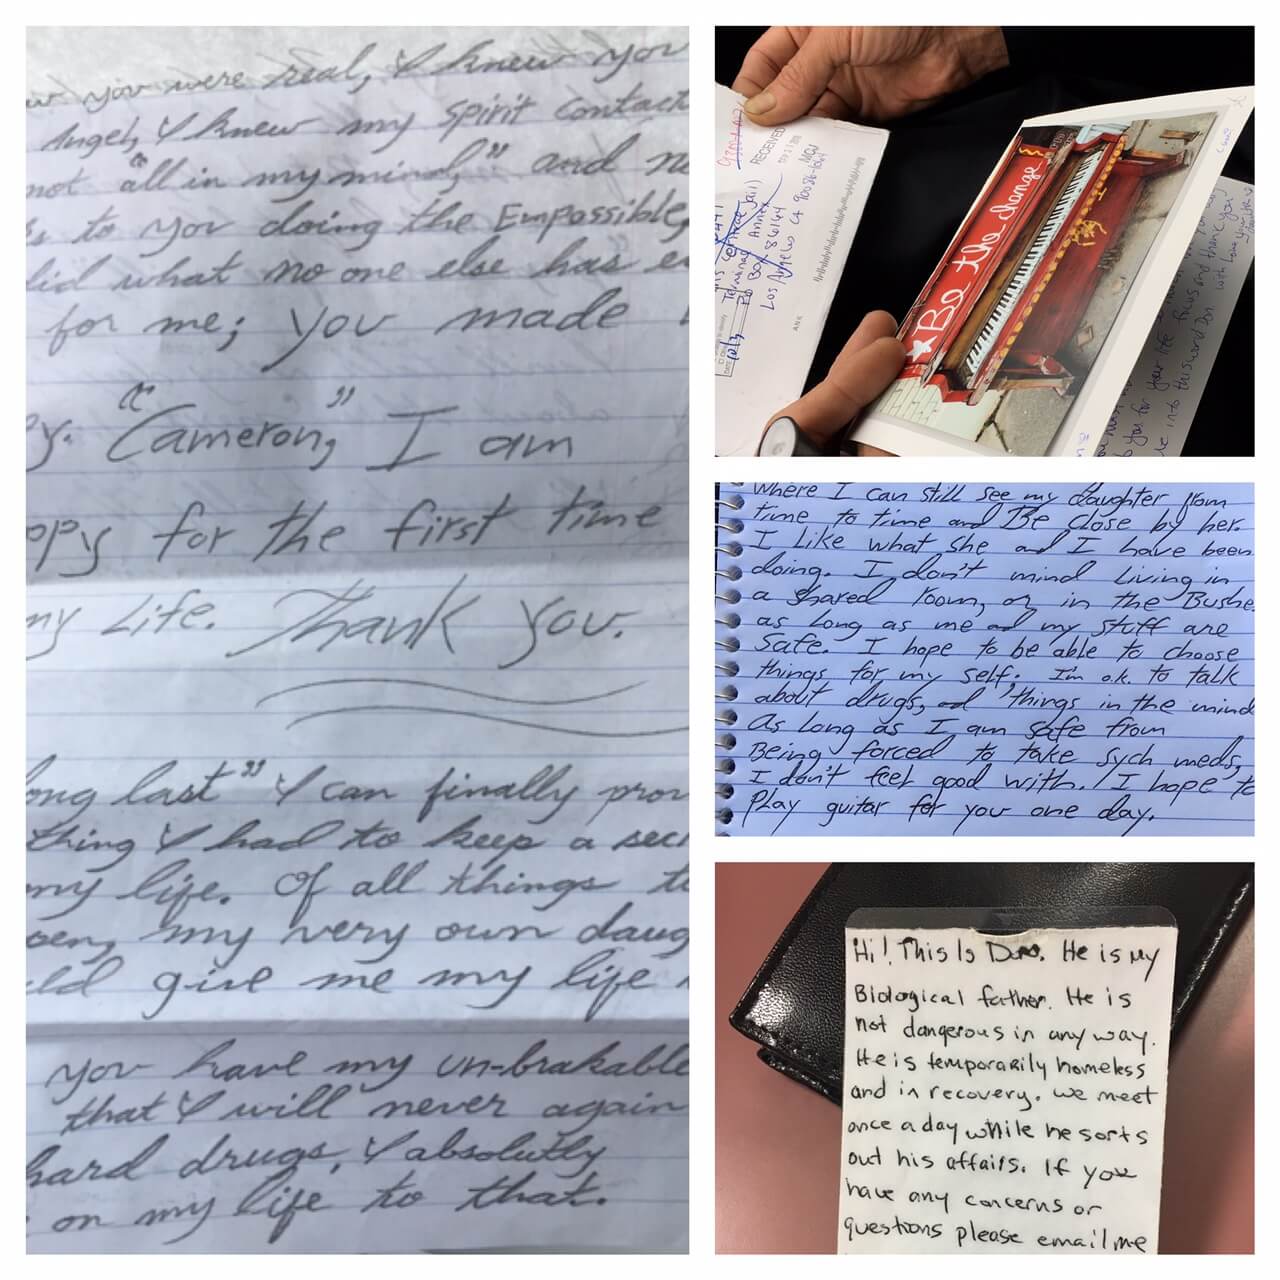 you were real, I knew you
Angel, I knew my spirit contact
not "all in my mind," and
to you doing the Empossible,
did what no one else has
for me; you made
"Cameron," I am
for the first time
my Life. Thank you.
long last" I can finally
thing I had to keep a
my life. Of all things
my very own
give me my life
you have my un-brakable
that I will never again
hard drugs, I absolutly
on my life to that.
RECEIVED
Terminal Annex
PO Box 86164
Los Angeles CA
Be the change
you for your life
focus and thank you
into this world Don with love
where I can still see my daughter from
time to time and Be close by her.
I Like what she and I have been
doing. I don't mind Living in
a shared room, or in the Bushe
as long as me and my stuff are
Safe. I hope to be able to choose
things for my self. I'm o.k. to talk
about drugs, and things in the mind
As long as I am safe from
Being forced to take sych meds,
I don't feel good with. I hope to
Play guitar for you one day.
Hi! This Is He is my
Biological father. He is
not dangerous in any way.
He is temporarily homeless
and in recovery. We meet
once a day while he sorts
out his affairs. If you
have any concerns or
questions please email me